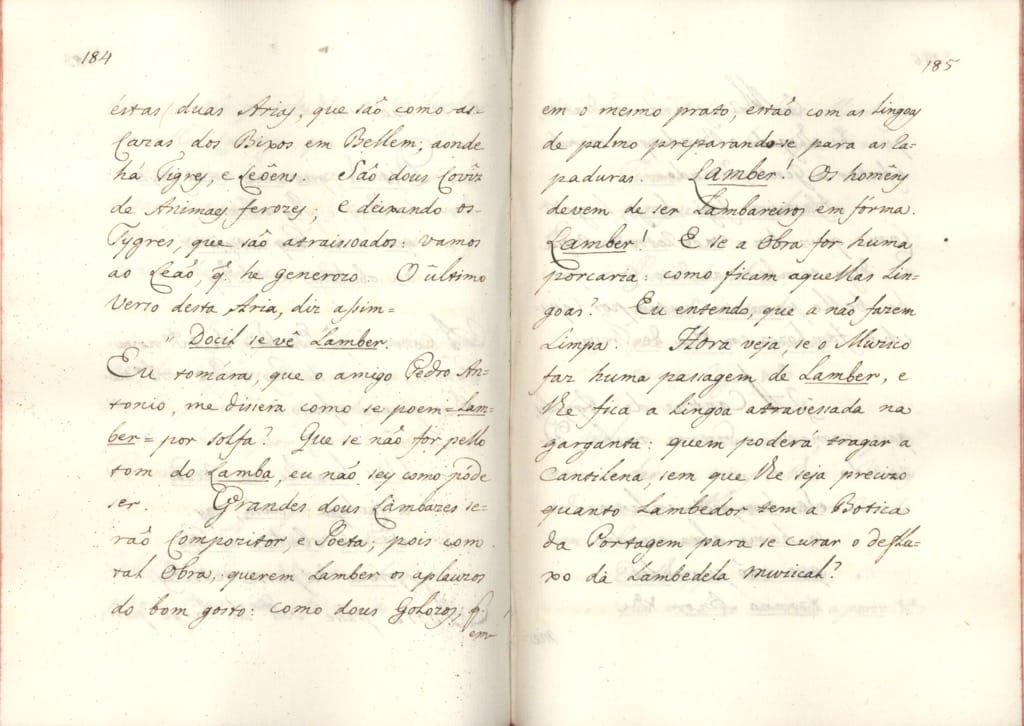 184
éstas duas Arias, que são como as-
Cazas dos Bixos em Bellem, aonde
há Tigres, e Leôens. São dous Covîz
de Animaes ferozes; e deixando os-
Tygres, que são atraissoados: vamos
ao Leaõ, q̃ he generozo. O ûltimo
Verso desta Aria, diz assim=
" Docil se vê Lamber.
Eu tomára, que o amigo Pedro An=
tonio, me dissera como se poem=Lam=
ber=por solfa? Que se não for pello
tom do Lamba, eu não sey como póde
ser. Grandes dous Lambazes se-
rão Compozitor, e Poeta; pois com
tal Obra, querem Lamber os aplauzos
do bom gosto: como dous Golozos; q̃
em
185
em o mesmo prato, estão com as lingoas
de palmo preparando-se para as la-
paduras. Lamber! Os homêns
devem de ser Lambareiros em fórma.
Lamber! E se a Obra for huma
porcaria: como ficam aquellas Lin-
goas? Eu entendo, que a não fazem
Limpa. Hora veja, se o Muzico
faz huma passagem de Lamber, e
lhe fica a Lingoa atravessada na
garganta: quem poderá tragar a
Cantilena, sem que lhe seja precizo
quanto Lambedor tem a Botica
da Portagem para se curar o deflu=
xo dà Lambedela muzical?